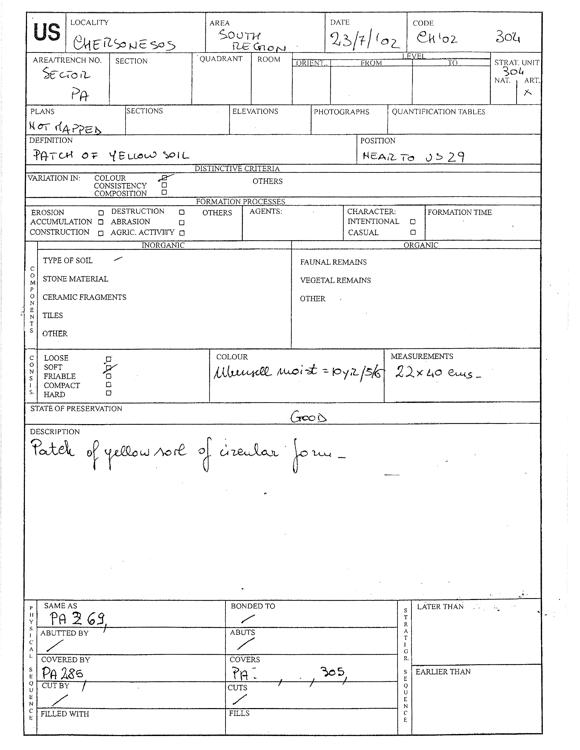 US
LOCALITY
CHERSONESOS
AREA
SOUTH
REGION
DATE
23/7/'02
CODE
CH'02
304
AREA/TRENCH NO.
SECTOR
PA
SECTION
QUADRANT
ROOM
LEVEL
ORIENT.
FROM
TO
STRAT. UNIT
304
NAT.
ART.
x
PLANS
NOT MAPPED
SECTIONS
ELEVATIONS
PHOTOGRAPHS
QUANTIFICATION TABLES
DEFINITION
PATCH OF YELLOW SOIL
POSITION
NEAR TO US 29
DISTINCTIVE CRITERIA
VARIATION IN:
COLOUR
CONSISTENCY
COMPOSITION
OTHERS
FORMATION PROCESSES
EROSION
ACCUMULATION
CONSTRUCTION
DESTRUCTION
ABRASION
AGRIC. ACTIVITY
OTHERS
AGENTS:
CHARACTER:
INTENTIONAL
CASUAL
FORMATION TIME
INORGANIC
ORGANIC
COMPONENTS
TYPE OF SOIL
STONE MATERIAL
CERAMIC FRAGMENTS
TILES
OTHER
FAUNAL REMAINS
VEGETAL REMAINS
OTHER
CONSIS.
LOOSE
SOFT
FRIABLE
COMPACT
HARD
COLOUR
Munsell moist = 10yr/5/6
MEASUREMENTS
22x40 cms_
STATE OF PRESERVATION
GOOD
DESCRIPTION
Patch of yellow soil of circular form_
PHYSICAL SEQUENCE
SAME AS
PA 269,
BONDED TO
ABUTTED BY
ABUTS
COVERED BY
PA 285
COVERS
PA: , , 305,
CUT BY
CUTS
FILLED WITH
FILLS
STRATIGR. SEQUENCE
LATER THAN
EARLIER THAN